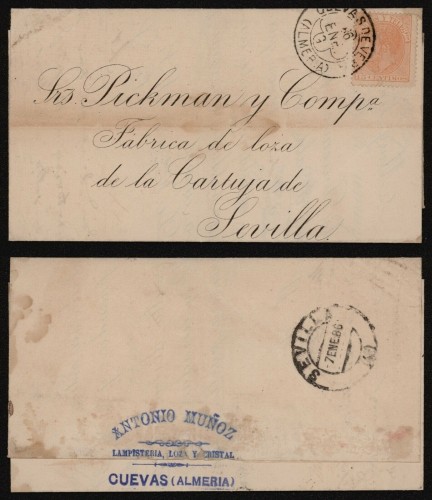 CUEVAS DE VERA
ENE
(ALMERIA)
Srs. Pickman y Compª
Fábrica de loza
de la Cartuja de
Sevilla.
SEVILLA
7 ENE 86
ANTONIO MUÑOZ
LAMPISTERIA, LOZA Y CRISTAL
CUEVAS (ALMERIA)